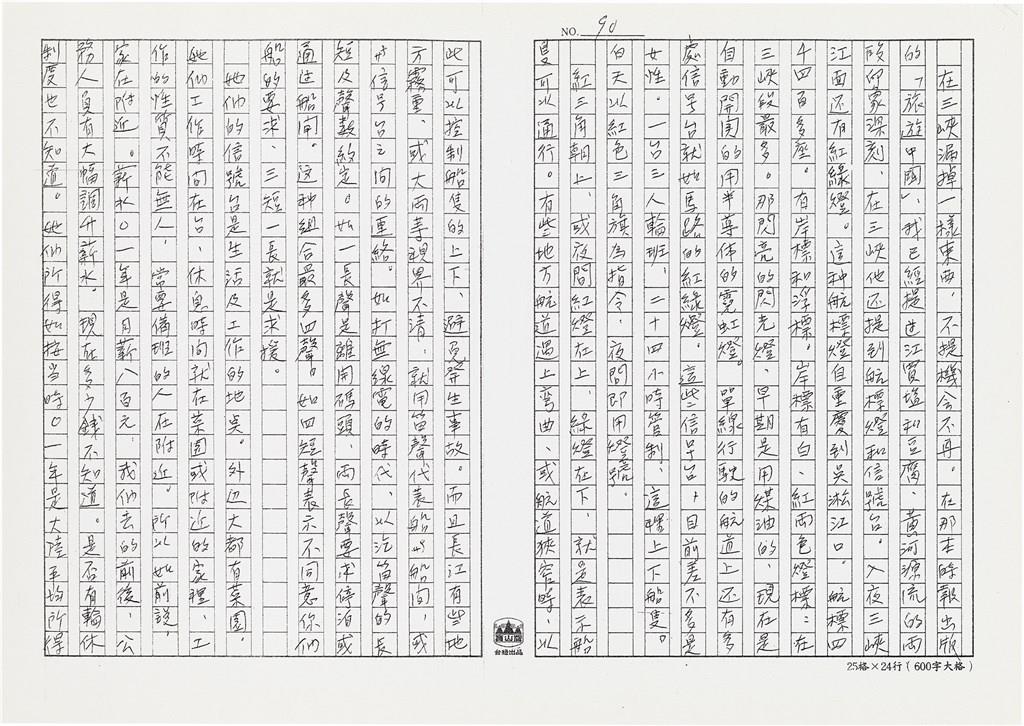 NO. 90
在三峽漏掉一樣東西,不提機會不再。在那本時報出版
的「旅遊中國」,我已經提過江買塩和豆腐、黃河源流的兩
段印象深刻、在三峽他还提到航標燈和信號台。入夜三峽
江面还有紅綠燈。這种航標燈自重慶到吳淞江口。航標四
千四百多座。有岸標和浮標。岸標有白、紅兩色燈標:在
三峽段最多。那閃亮的閃光燈、早期是用煤油的、現在是
自動開闭的用半导体的霓虹燈。單線行駛的航道上还有多
處信号台就如馬路的紅綠燈。這些信号台,目前差不多是
女性。一台三人輪班、二十四小時管制、這裡上下船隻。
白天以紅色三角旗為指令、夜間即用燈號。
紅三角朝上、或夜間紅燈在上、綠燈在下、就是表示船
隻可以通行。有些地方航道過上弯曲、或航道狹窄時、以
此可以控制船隻的上下、避免發生事故。而且長江有些地
方霧重、或大雨等視界不清、就用笛聲代表船與船间、或
与信号台之间的連絡。如打無線電的時代、以汽笛聲的長
短及聲数約定。如一長聲是離開碼頭、兩長聲要求停泊或
通过船闸。这种組合最多四聲。如四短聲表示不同意你们
船的要求、三短一長就是求援。
她们的信號台是生活及工作的地点。外边大都有菜園。
她们工作時间在台、休息時间就在菜園或附近的家裡、工
作的性質不能無人、常要備班的人在附近。所以如前說、
家在附近。薪水〇一年是月薪八百元、我们去的前後、公
務人員有大幅調升薪水。現在多少錢不知道。是否有輪休
制度也不知道。她们所得如按当時〇一年是大陸平均所得
25格×24行(600字大格)
台糖出品